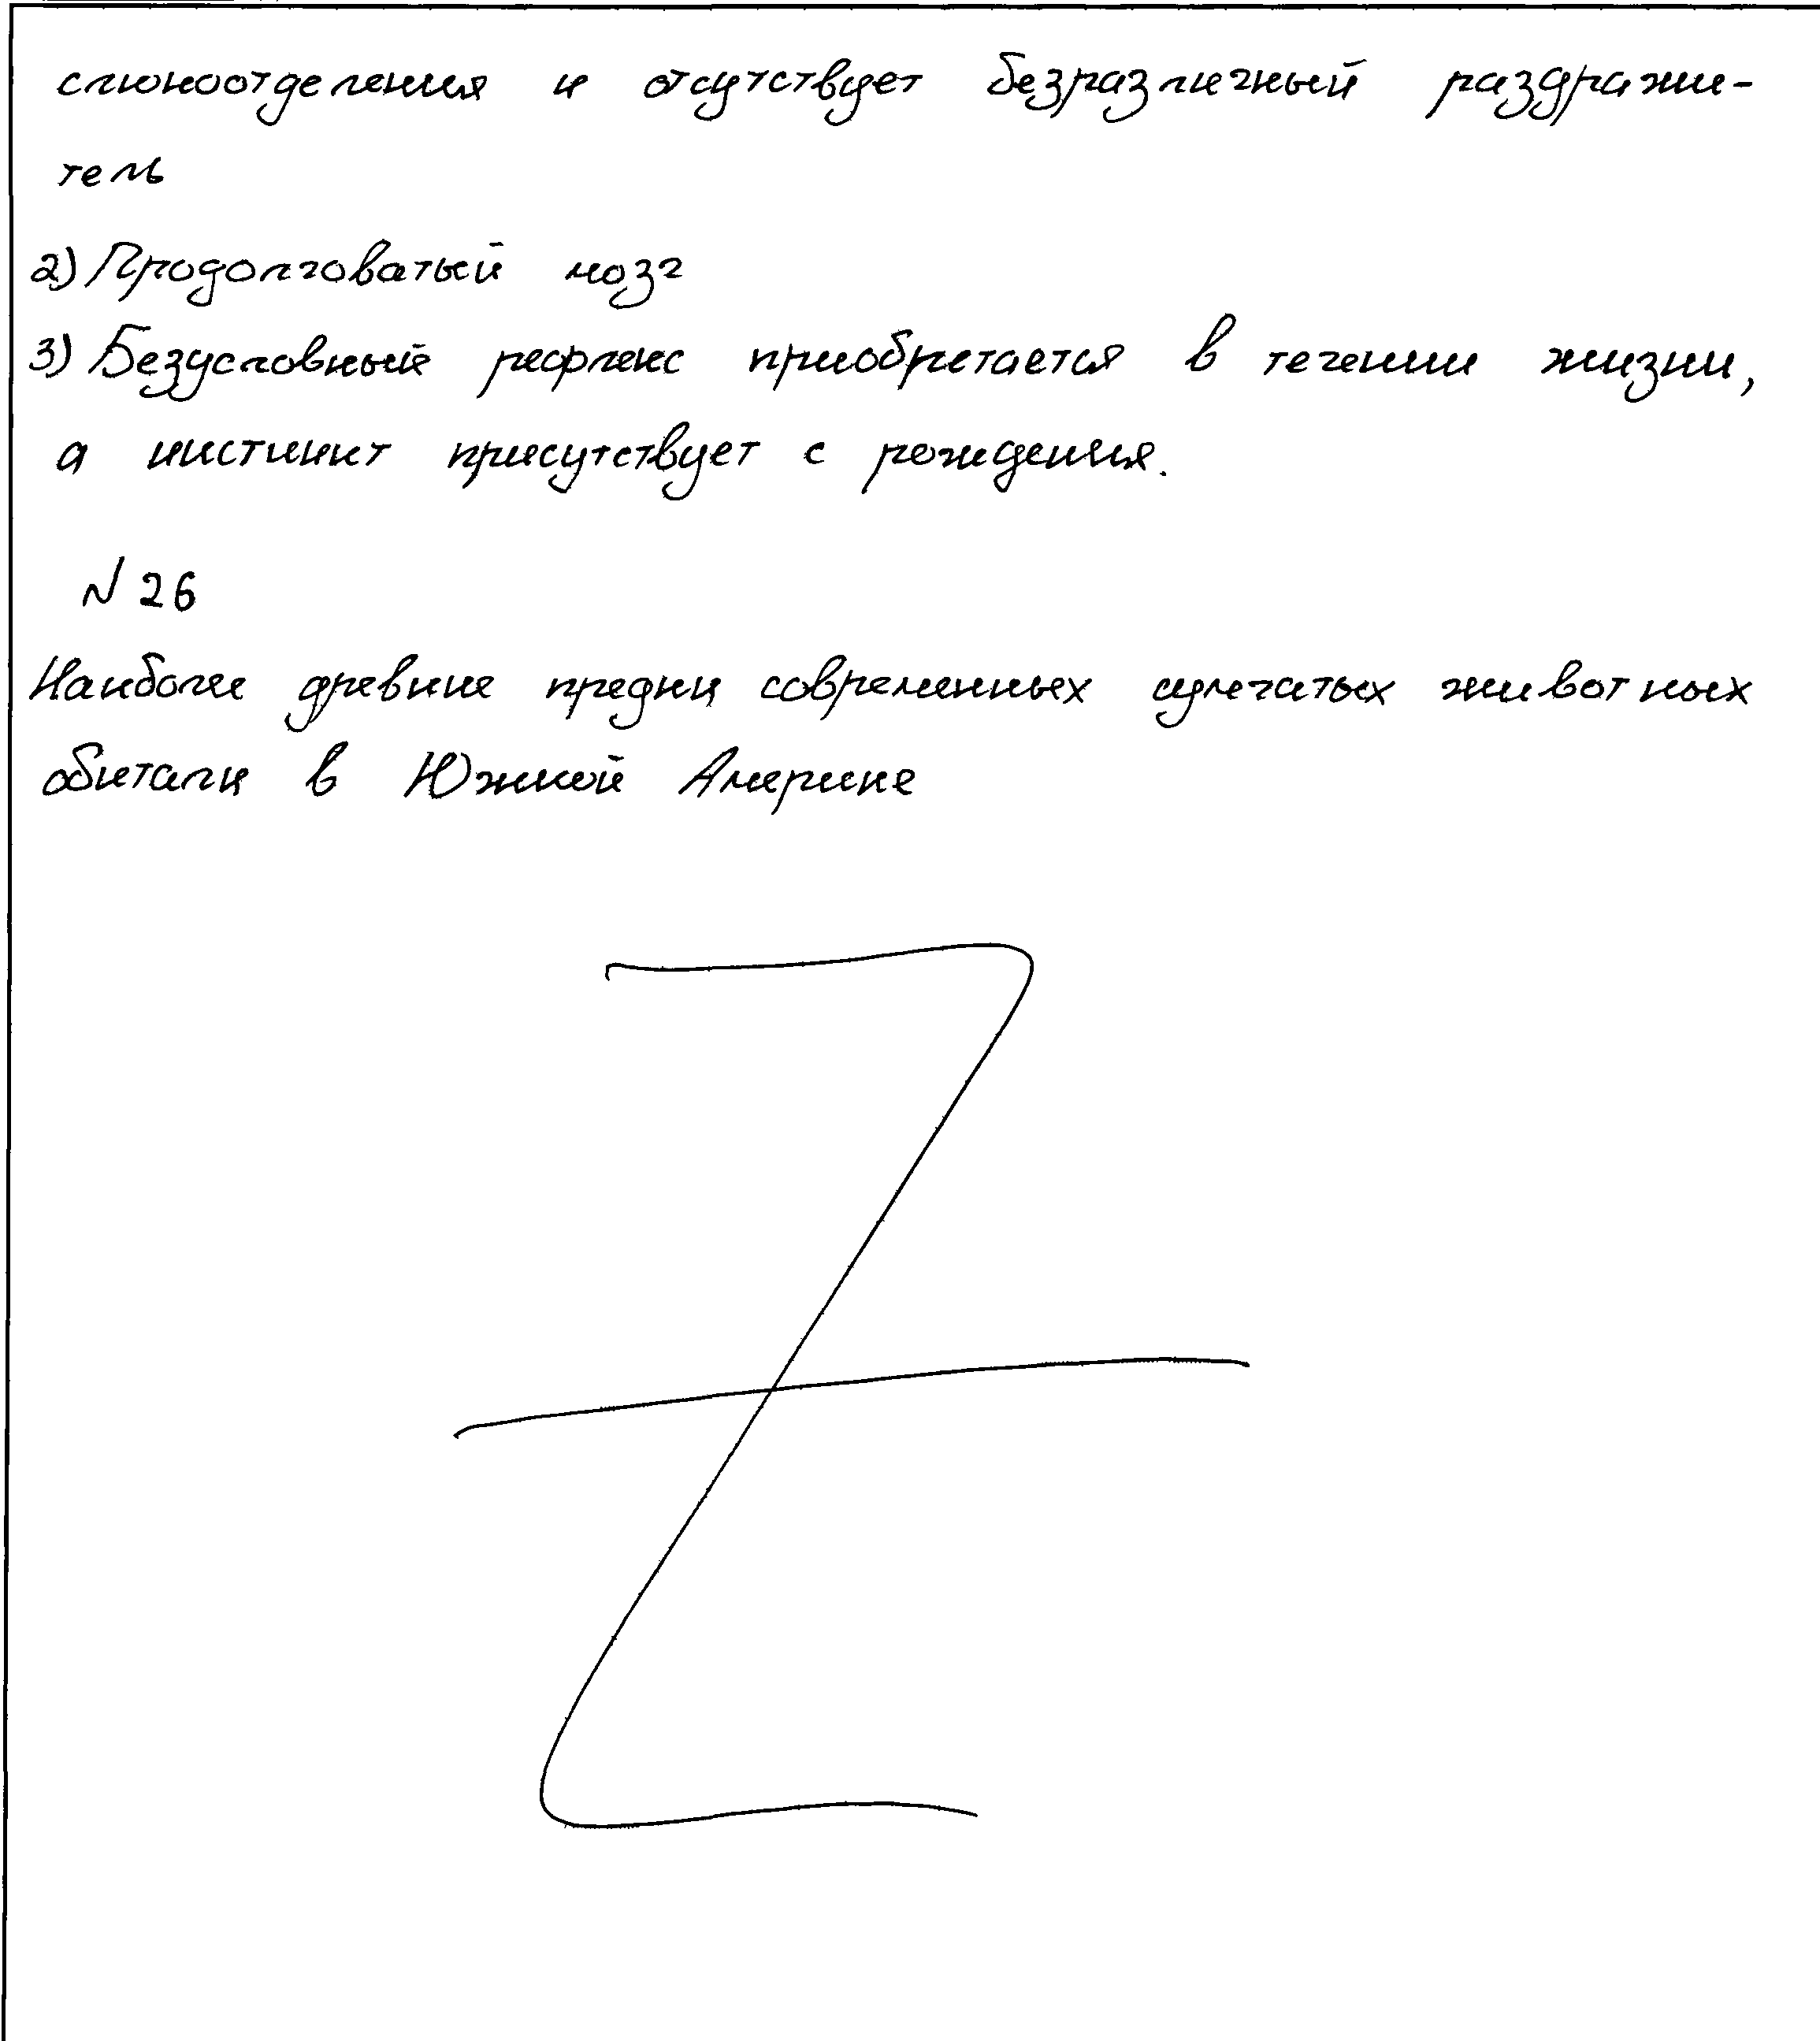 слюноотделения и отсутствует безразличный раздражи-
тель
2) Продолговатый мозг
3) Безусловный рефлекс приобретается в течении жизни,
а инстинкт присутствует с рождения.
№ 26
Наиболее древние предки современных сумчатых животных
обитали в Южной Америке